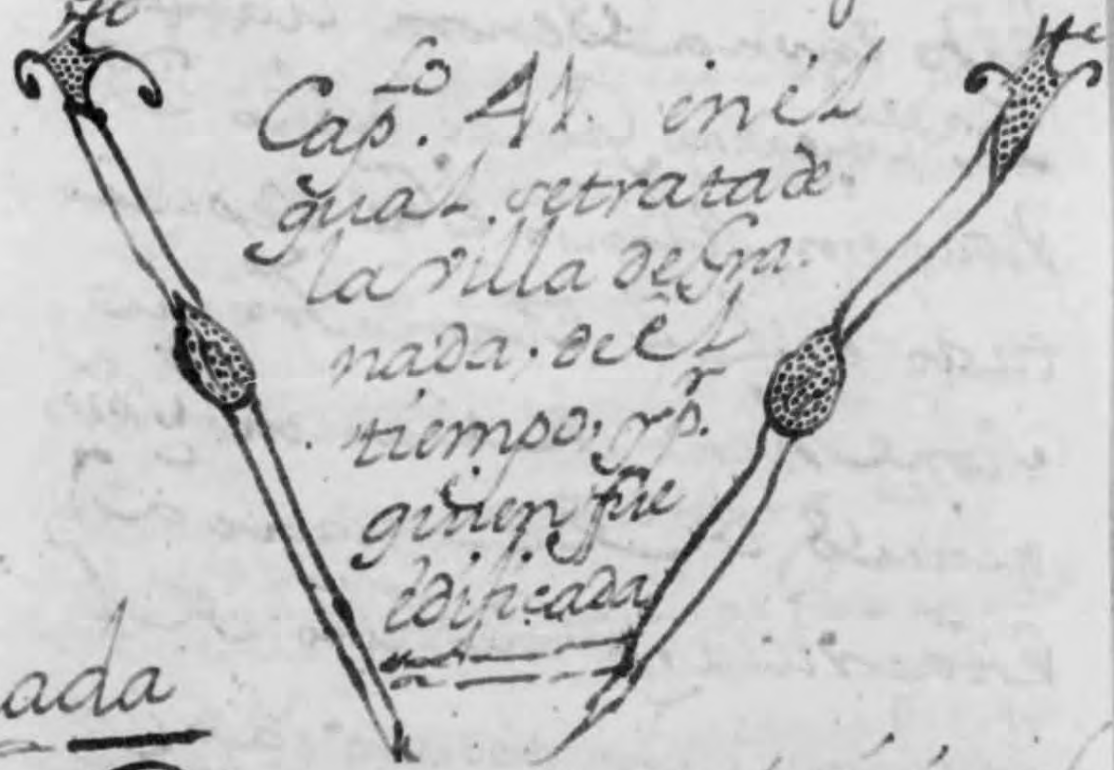 Cap.lo 41. en el
qual. se trata de
la villa de Gra.
nada. del
tiempo, y p.r
quien fue
edificada
ada